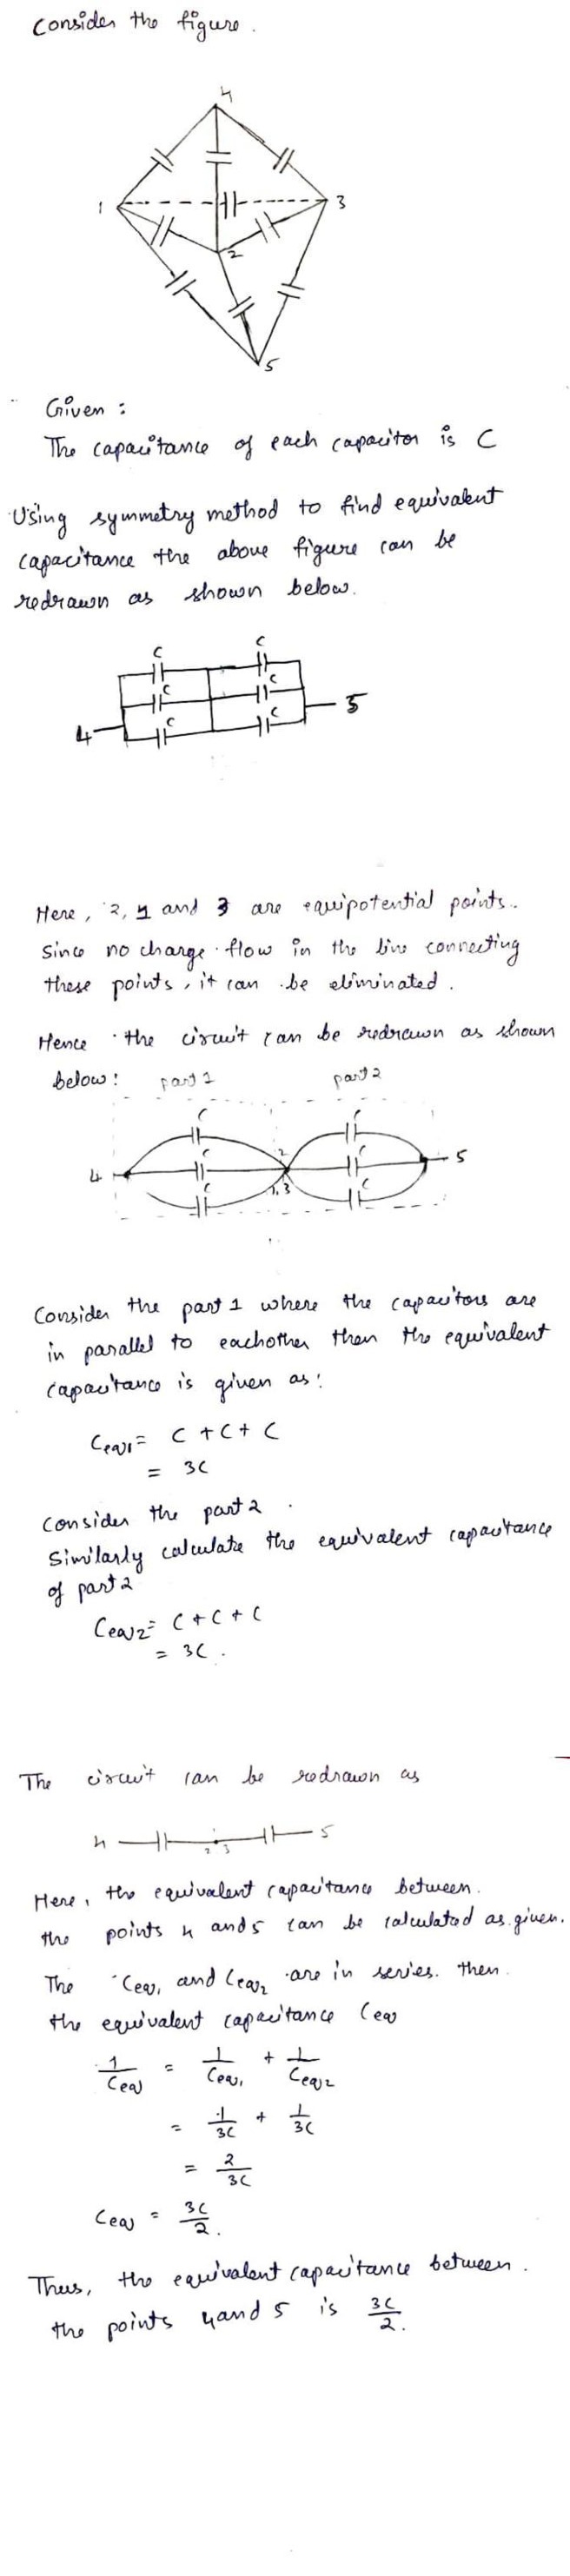 Consider the figure.
4
1
3
2
5
Given :
The capacitance of each capacitor is C
Using symmetry method to find equivalent
capacitance the above figure can be
redrawn as shown below.
C C
C C
C C
4 5
Here, 2, 1 and 3 are equipotential points.
Since no charge flow in the line connecting
these points, it can be eliminated.
Hence the circuit can be redrawn as shown
below: part 1 part 2
C C
C C
C C
4 2 5
1,3
Consider the part 1 where the capacitors are
in parallel to eachother then the equivalent
capacitance is given as:
Ceq1 = C + C + C
= 3C
Consider the part 2.
Similarly calculate the equivalent capacitance
of part 2
Ceq2 = C + C + C
= 3C.
The circuit can be redrawn as
4 2 3 5
Here, the equivalent capacitance between.
the points 4 and 5 can be calculated as given.
The Ceq1 and Ceq2 are in series. then.
the equivalent capacitance Ceq
1/Ceq = 1/Ceq1 + 1/Ceq2
= 1/3C + 1/3C
= 2/3C
Ceq = 3C/2.
Thus, the equivalent capacitance between.
the points 4 and 5 is 3C/2.